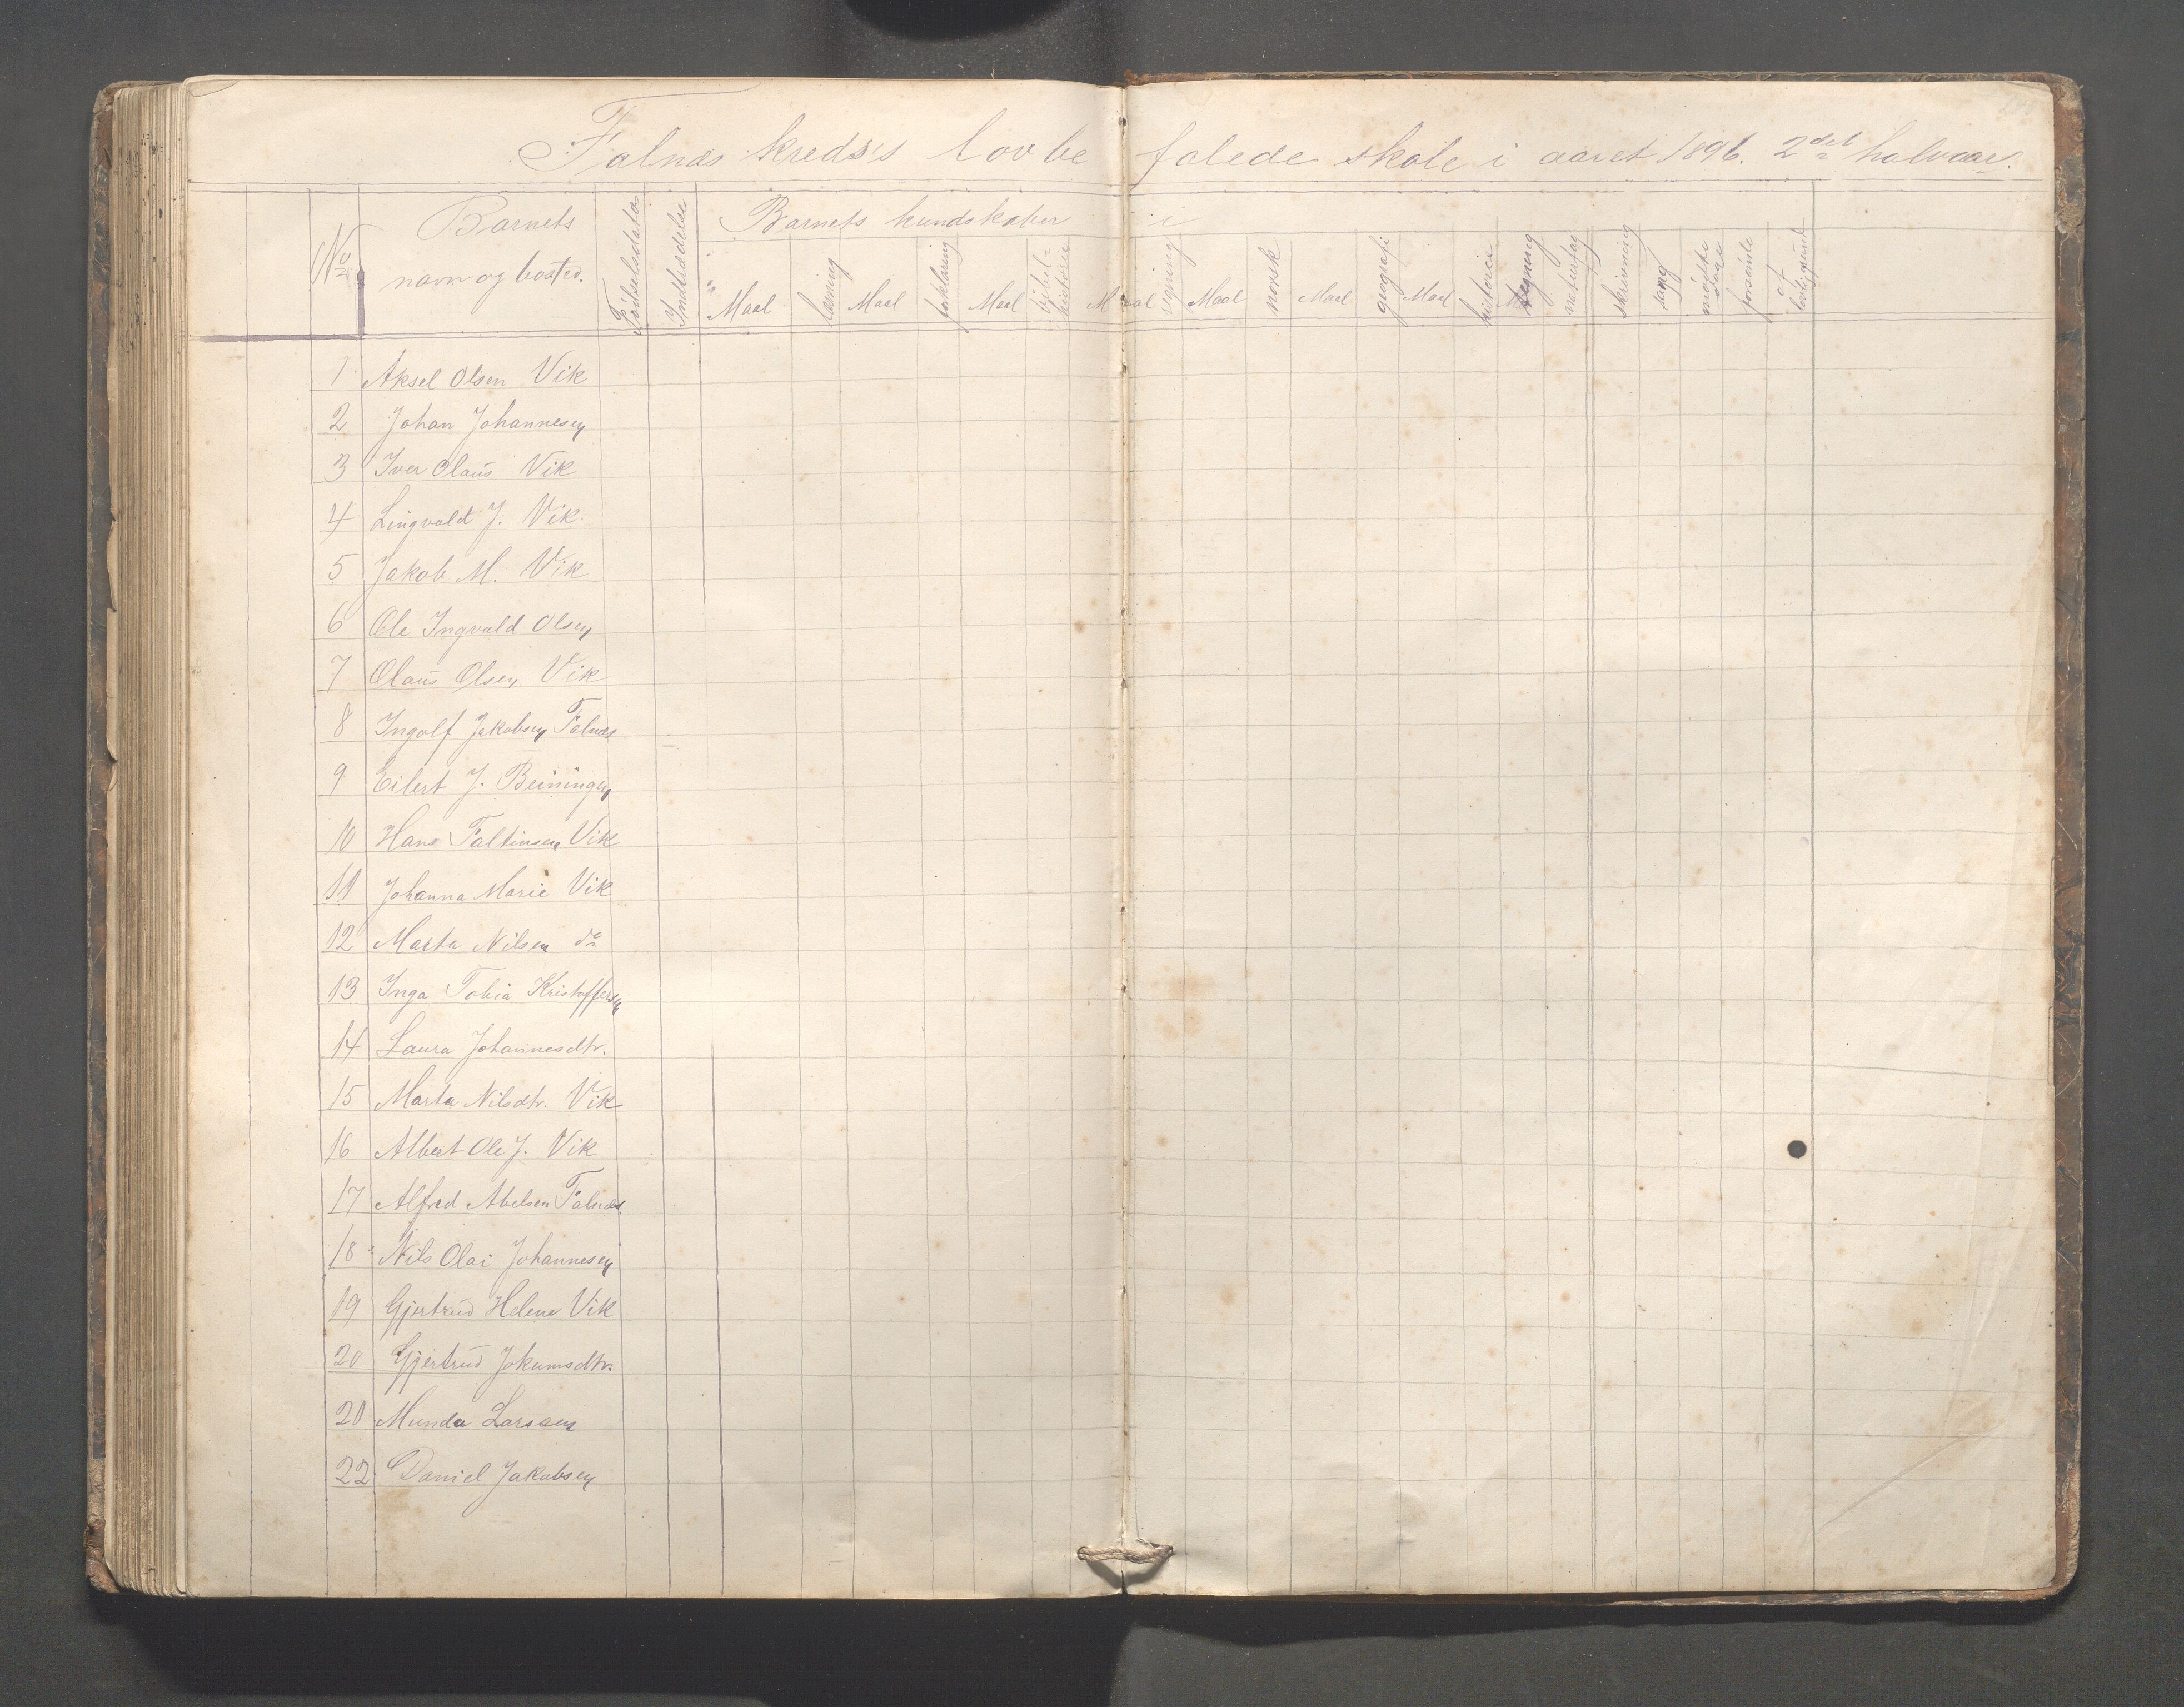 Falnæs kreds's lovbefalede skole i aaret 1896. 2det halvaar.
No
Barnets
navn og bosted.
Fødselsdato
Indtrædelse
Barnets kundskaber i
Maal
læsning
Maal
forklaring
Maal
bibel-
historie
Maal
regning
Maal
norsk
Maal
geografi
Maal
historie
tegning
naturfag
skrivning
sang
mødte
dage
forsømte
af
lovlig grund
1 Aksel Olsen Vik
2 Johan Johannesen
3 Iver Olaus Vik
4 Lingvald J. Vik.
5 Jakob M. Vik
6 Ole Ingvald Olsen
7 Olaus Olsen Vik
8 Ingolf Jakobsen Falnæs
9 Eilert J. Beiningen
10 Hans Faltinsen Vik
11 Johanna Marie Vik
12 Marta Nilsen do
13 Inga Tobia Kristoffersen
14 Laura Johannesdtr.
15 Marta Nilsdtr. Vik
16 Albert Ole J. Vik
17 Alfred Abelsen Falnæs.
18 Nils Olai Johannesen
19 Gjertrud Helene Vik
20 Gjertrud Jokumsdtr.
20 Munda Larsen
22 Daniel Jakobsen